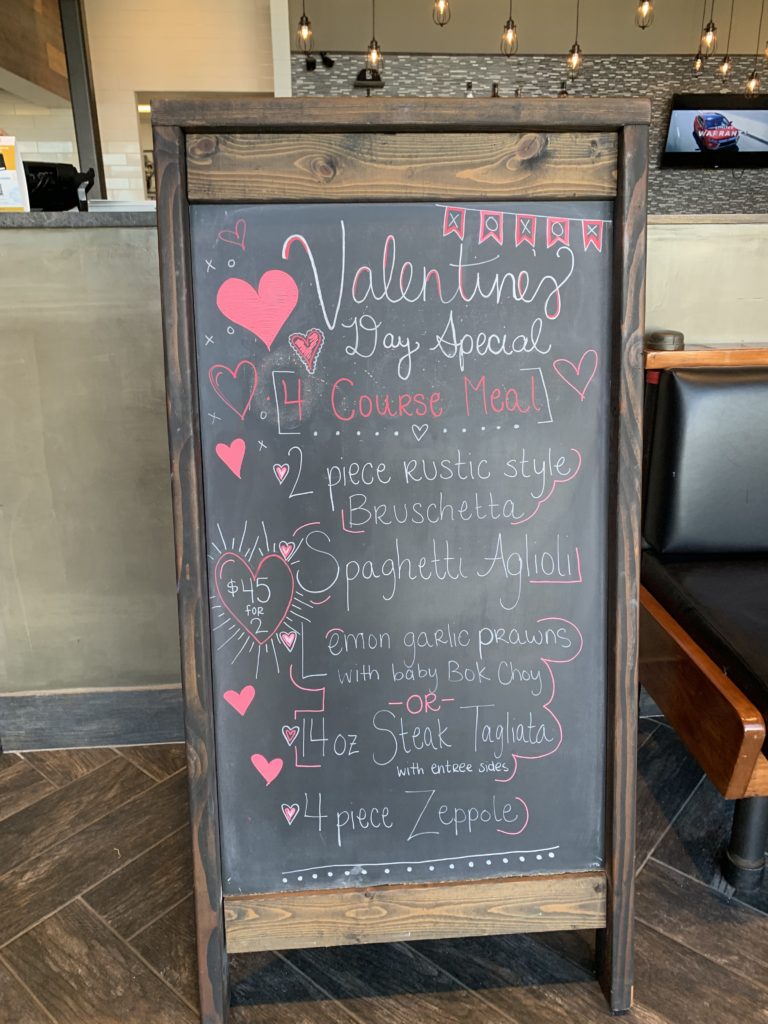 XOXOX
Valentine's
Day Special
4 Course Meal
2 piece Rustic style
Bruschetta
Spaghetti Aglioli
$45
FOR
2
Lemon garlic prawns
with baby Bok Choy
-OR-
14oz Steak Tagliata
with entree sides
4 piece Zeppole
WARRANT